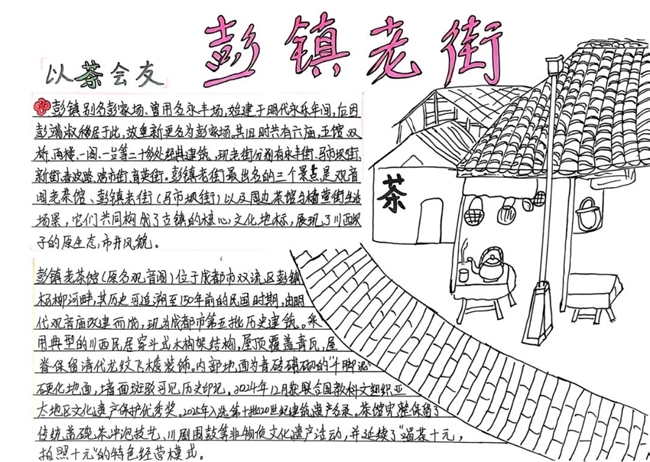 彭镇老街
以茶会友
彭镇别名彭家场,曾用名永丰场,始建于明代永乐年间,后因
彭端淑移居于此,故重新更名为彭家场,其旧时共有六庙、五馆、双
桥、两楼、一阁、一等二十多处经典建筑,现老街分别有永丰街、马市坝街,
新街、鱼市街、育英街。彭镇老街最出名的三个景点是观音
阁老茶馆、彭镇老街(马市坝街)以及周边茶馆与街生活
场景,它们共同构成了古镇的核心文化地标,展现了川西坝
子的原生态市井风貌。
茶
彭镇老茶馆(原名观音阁)位于成都市双流区彭镇
杨柳河畔,其历史可追溯至150年前的民国时期,由明
代观音庙改建而成,现为成都市第五批历史建筑。采
用典型的川西民居穿斗式木构架结构,屋顶覆盖青瓦,屋
脊保留清代龙纹飞檐装饰。内部地面为青砖铺砌的"千脚泥"
硬化地面,墙面斑驳可见历史印记。2024年12月获联合国教科文组织亚
太地区文化遗产保护优秀奖。2025年入选第十批20世纪建筑遗产名录。茶馆完整保留了
传统盖碗茶冲泡技艺、川剧围鼓等非物质文化遗产活动,并延续了"喝茶十元,
拍照十元"的特色经营模式。